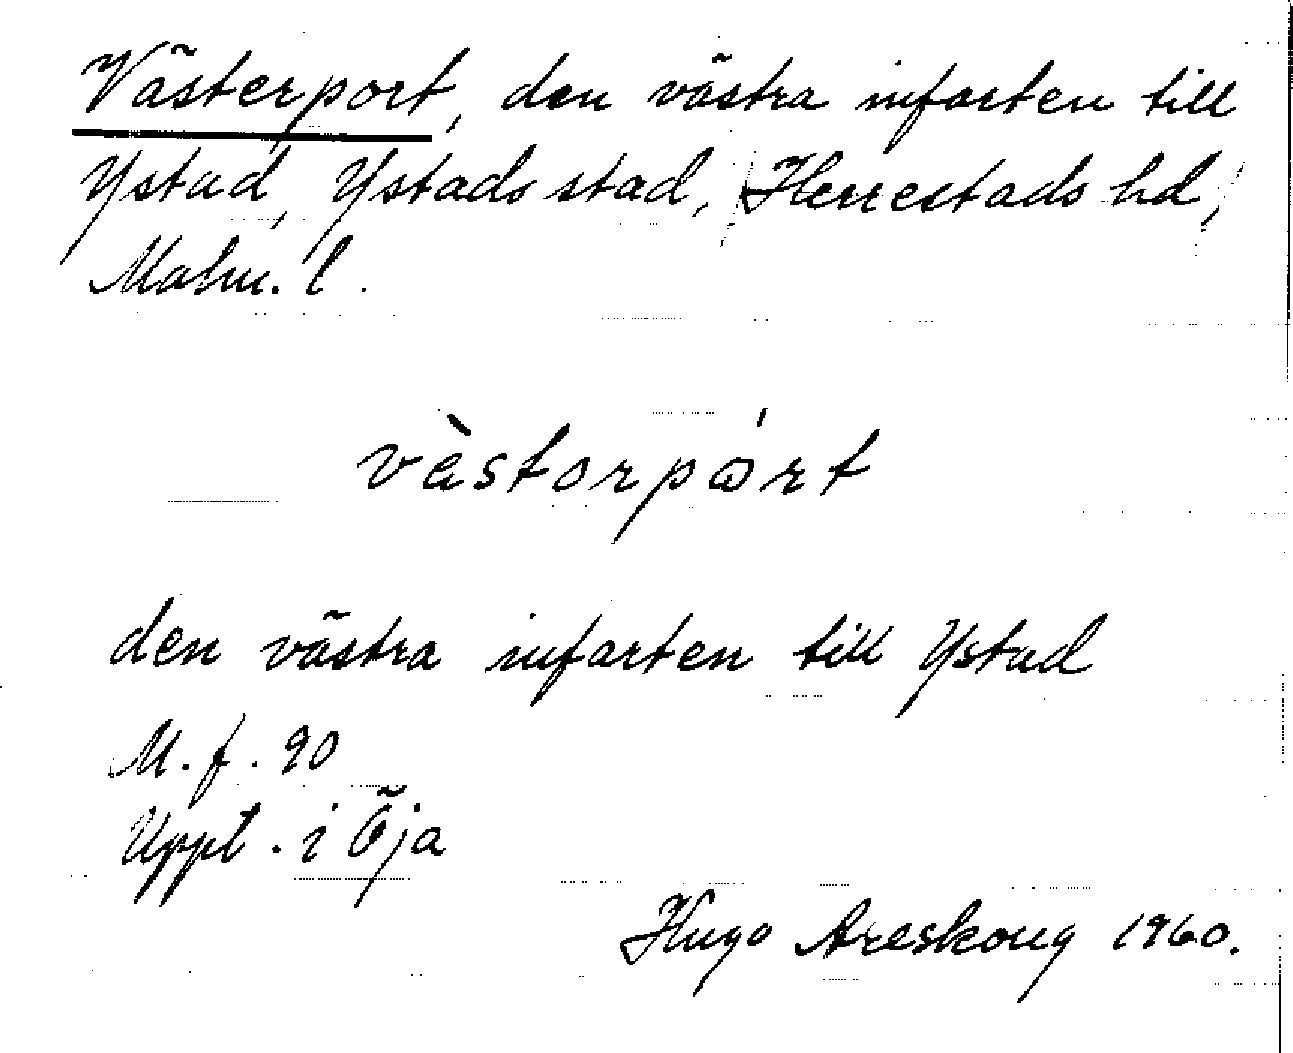 Västerport, den västra infarten till
Ystad, Ystads stad, (Herrestads hd,)
Malm. l.
vèstorpårt
den västra infarten till Ystad
M. f. 90
Uppt. i Öja
Hugo Areskoug 1960.